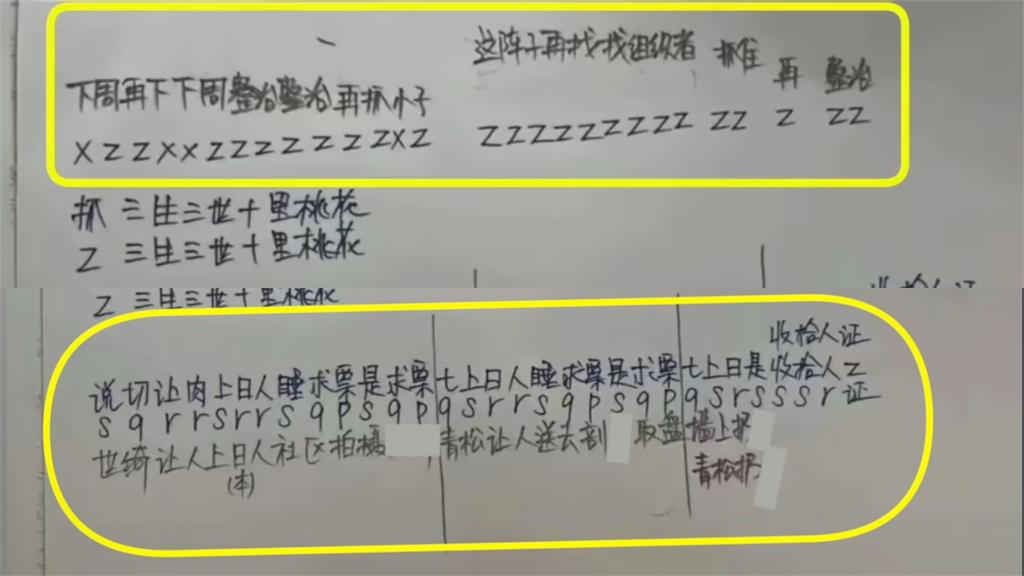 这阵子再找找组织者 抓住 再 整治
下周再下下周整治整治再抓小子
XZZXXZZZZZZZXZ ZZZZZZZZZ ZZ Z ZZ
抓 三生三世十里桃花
Z 三生三世十里桃花
Z 三生三世十里桃花
收拾人证
说切让肉上日人睡求票是求票 七上日人睡求票是求票 七上日是收拾人Z
sqrrsrrsqpsqp qsrrsqpsqp qsrsssr证
世绮让人上日人社区拍摄 青松让人送去剖 取盘 墙上扔
(本) 青松扔